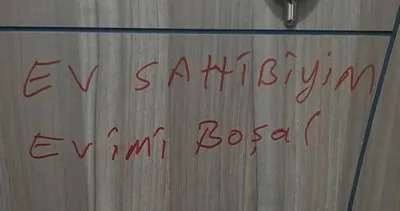 EV SAHİBİYİM
EVİMİ BOŞAL